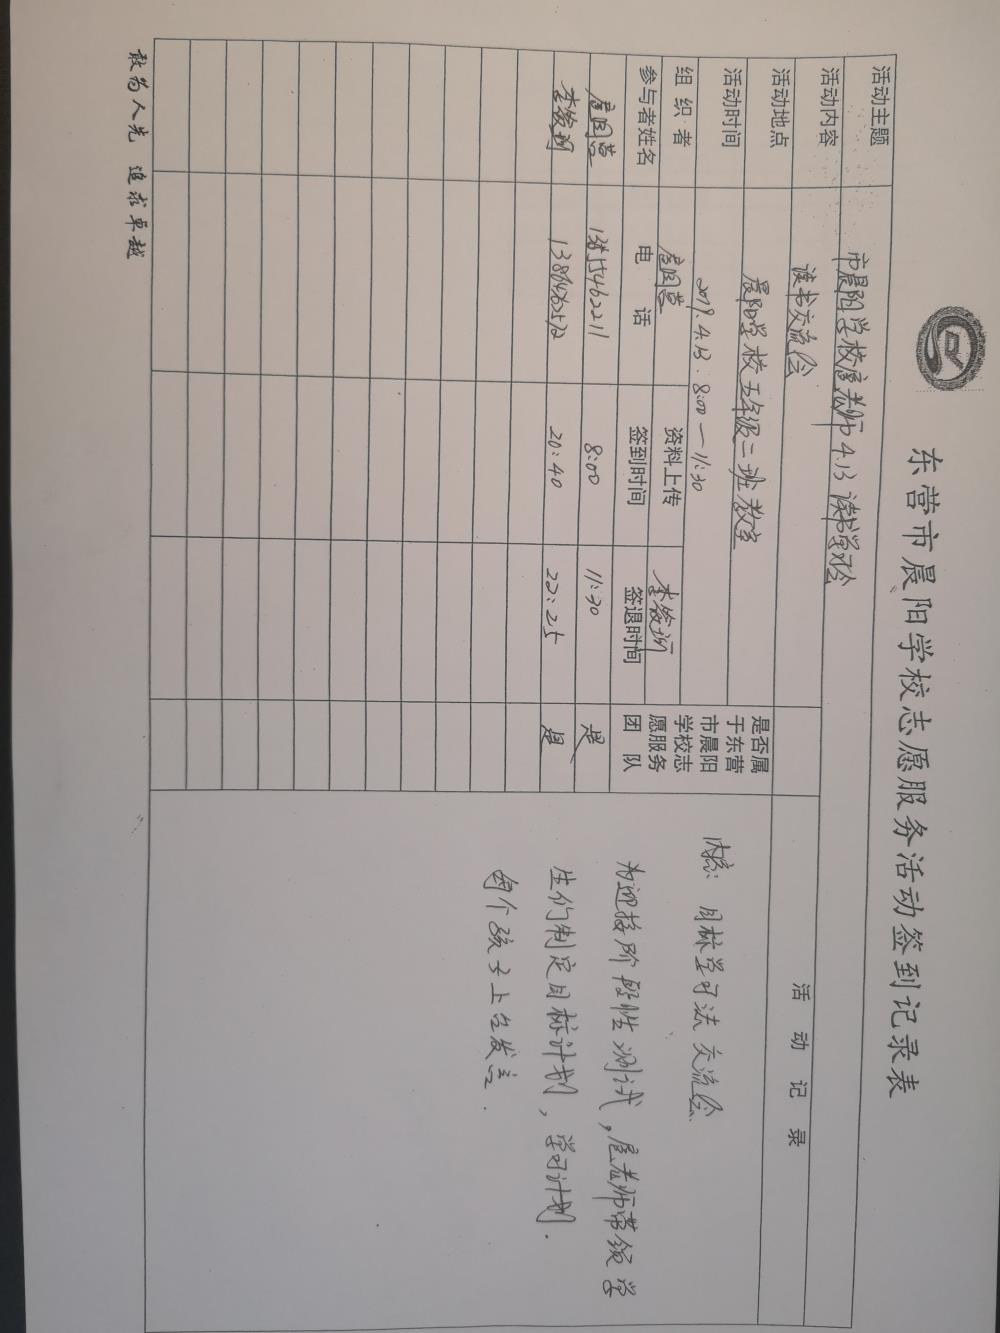 东营市晨阳学校志愿服务活动签到记录表
活动主题 市晨阳学校扈老师4.13读书学习会
活动内容 读书交流会
活动地点 晨阳学校五年级二班教室
活动时间 2019.4.13. 8:00—11:30
组织者 资料上传
参与者姓名 电话 签到时间 签退时间 是否属于东营市晨阳学校志愿服务团队
8:00 11:30 是
20:40 22:25 是
活动记录
内容: 目标学习法交流会
为迎接阶段性测试,扈老师带领学
生们制定目标计划,学习计划.
每个孩子上台发言.
敢为人先 追求卓越